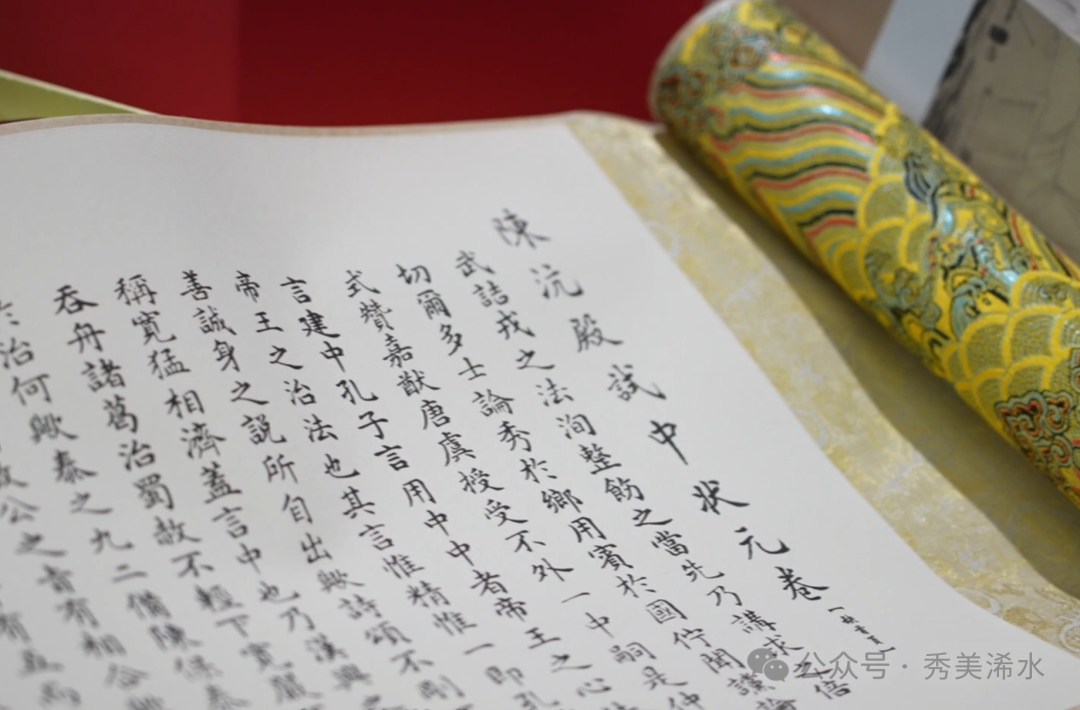 陳沆殿試中狀元卷
武詰戎之法洵整飭之當先乃講求之倍
切爾多士論秀於鄉用賓於國佇聞讜論
式贊嘉猷唐虞授受不外一中嗣是仲
言建中孔子言用中中者帝王之心
帝王之治法也其言惟精惟一即孔
善誠身之說所自出歟詩頌不剛
稱寬猛相濟蓋言中也乃漢興
吞舟諸葛治蜀赦不輕下寬嚴
於治何歟泰之九二備陳保泰
公之言有相合歟
有五而
公众号·秀美浠水